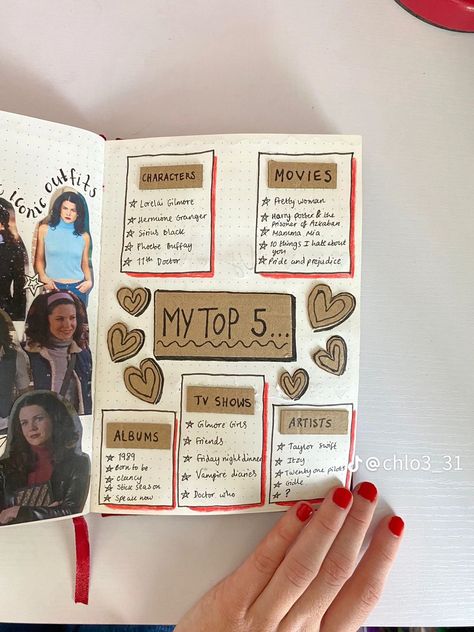 iconic outfits
CHARACTERS
☆ Lorelai Gilmore
☆ Hermione Granger
☆ Sirius Black
☆ Phoebe Buffay
☆ 11th Doctor
MOVIES
☆ Pretty woman
☆ Harry potter & the
prisoner of Azkaban
☆ Mamma Mia
☆ 10 things I hate about
you
☆ Pride and prejudice
MY TOP 5...
ALBUMS
☆ 1989
☆ Born to be
☆ Clancy
☆ Stick season
☆ Speak now
TV SHOWS
☆ Gilmore Girls
☆ Friends
☆ Friday night dinner
☆ Vampire diaries
☆ Doctor who
ARTISTS
☆ Taylor Swift
☆ Itzy
☆ Twenty one pilots
☆ Gidle
☆ ?
@chlo3_31